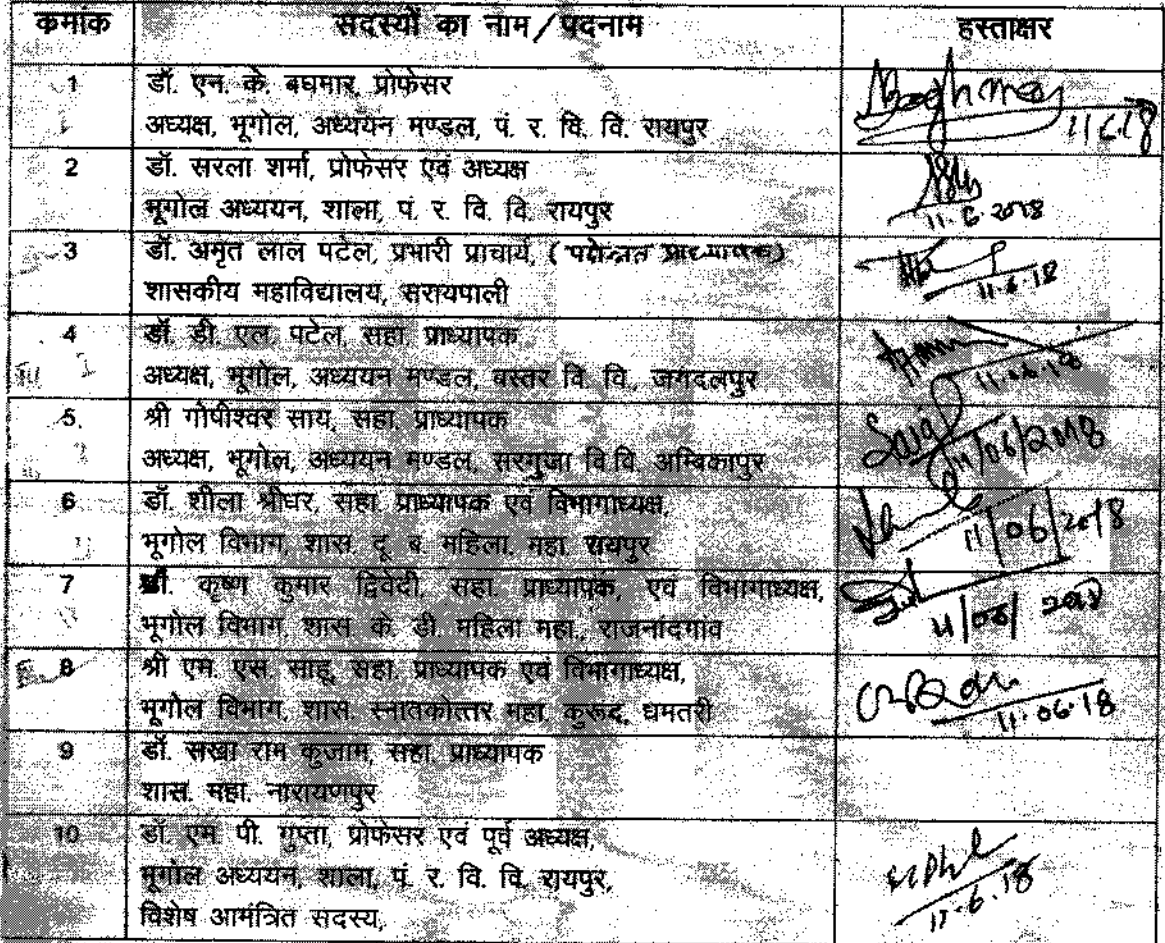 कमांक सदस्यों का नाम/पदनाम हस्ताक्षर
1 डॉ. एन. के. बघमार, प्रोफेसर
अध्यक्ष, भूगोल, अध्ययन मण्डल, पं. र. वि. वि. रायपुर
11.6.18
2 डॉ. सरला शर्मा, प्रोफेसर एवं अध्यक्ष
भूगोल अध्ययन, शाला, पं. र. वि. वि. रायपुर
11.6.2018
3 डॉ. अमृत लाल पटेल, प्रभारी प्राचार्य, (पदोन्नत प्राध्यापक)
शासकीय महाविद्यालय, सरायपाली
11.6.18
4 डॉ. डी. एल. पटेल, सहा. प्राध्यापक
अध्यक्ष, भूगोल, अध्ययन मण्डल, बस्तर वि. वि., जगदलपुर
11.06.18
5. श्री गोपीश्वर साय, सहा. प्राध्यापक
अध्यक्ष, भूगोल, अध्ययन मण्डल, सरगुजा वि.वि. अम्बिकापुर
11/06/2018
6 डॉ. शीला श्रीधर, सहा. प्राध्यापक एवं विभागाध्यक्ष,
भूगोल विभाग, शास. दू. ब. महिला. महा. रायपुर
11/06/2018
7 कृष्ण कुमार द्विवेदी, सहा. प्राध्यापक, एवं विभागाध्यक्ष,
भूगोल विभाग, शास. के. डी. महिला महा., राजनांदगांव
11/06/2018
8 श्री एम. एस. साहू, सहा. प्राध्यापक एवं विभागाध्यक्ष,
भूगोल विभाग, शास. स्नातकोत्तर महा. कुरूद, धमतरी
11.06.18
9 डॉ. सखा राम कुंजाम, सहा. प्राध्यापक
शास. महा. नारायणपुर
10 डॉ. एम. पी. गुप्ता, प्रोफेसर एवं पूर्व अध्यक्ष,
भूगोल अध्ययन, शाला, पं. र. वि. वि. रायपुर,
विशेष आमंत्रित सदस्य,
11.6.18